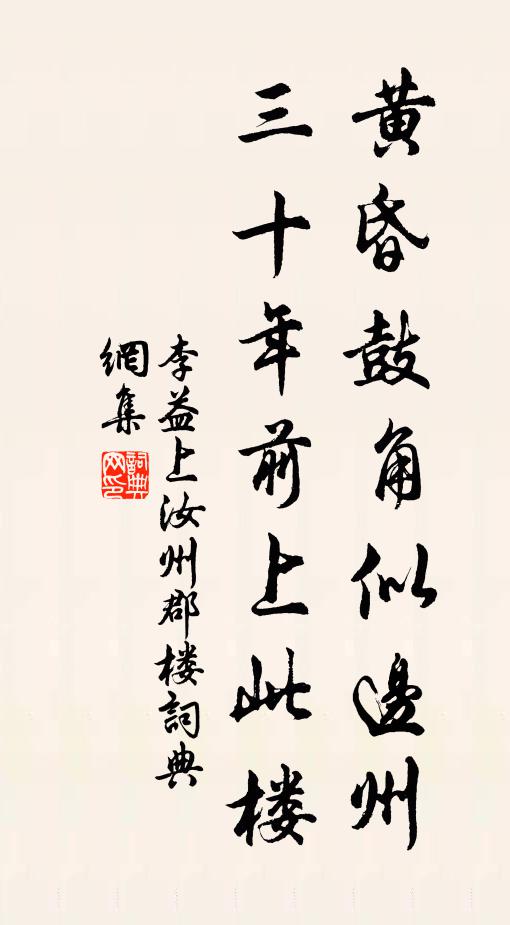 黄昏鼓角似邊州
三十年前上此楼
李益上汝州郡楼詞典
網集
詞典
网印